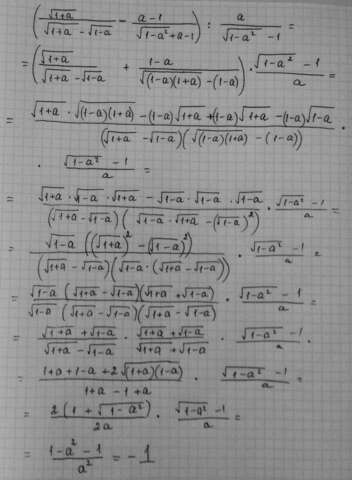 (√(1+a) / (√(1+a) - √(1-a)) - (a-1) / (√(1-a²) + a-1)) : a / (√(1-a²) - 1) =
= (√(1+a) / (√(1+a) - √(1-a)) + (1-a) / (√((1-a)(1+a)) - (1-a))) · (√(1-a²) - 1) / a =
= (√(1+a) · √((1-a)(1+a)) - (1-a)√(1+a) + (1-a)√(1+a) - (1-a)√(1-a)) / ((√(1+a) - √(1-a))(√((1-a)(1+a)) - (1-a))) ·
· (√(1-a²) - 1) / a =
= (√(1+a) · √(1-a) · √(1+a) - √(1-a) · √(1-a) · √(1-a)) / ((√(1+a) - √(1-a))(√(1-a) · √(1+a) - (√(1-a))²)) · (√(1-a²) - 1) / a =
= (√(1-a) ((√(1+a))² - (√(1-a))²)) / ((√(1+a) - √(1-a))(√(1-a) · (√(1+a) - √(1-a)))) · (√(1-a²) - 1) / a =
= (√(1-a) (√(1+a) - √(1-a))(√(1+a) + √(1-a))) / (√(1-a) (√(1+a) - √(1-a))(√(1+a) - √(1-a))) · (√(1-a²) - 1) / a =
= (√(1+a) + √(1-a)) / (√(1+a) - √(1-a)) · (√(1+a) + √(1-a)) / (√(1+a) + √(1-a)) · (√(1-a²) - 1) / a ·
= (1+a + 1-a + 2√((1+a)(1-a))) / (1+a - 1+a) · (√(1-a²) - 1) / a =
= 2(1 + √(1-a²)) / 2a · (√(1-a²) - 1) / a =
= (1-a² - 1) / a² = -1